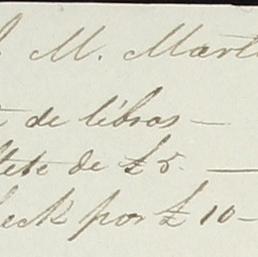 M. Mart
de libros —
llete de £5. —
heck por £10 —